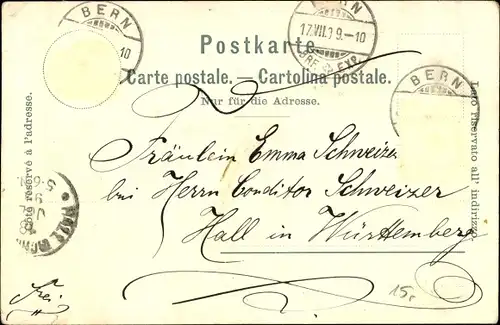 BERN
BERN
10
17.VII.99.-10
BRF. EXP.
Postkarte.
Carte postale. — Cartolina postale.
Nur für die Adresse.
BERN
Côté réservé à l'adresse.
Lato riservato all' indirizzo.
Fräulein Emma Schweizer
bei Herrn Conditor Schweizer
Hall in Württemberg
HALL
5-6
Frei
15,